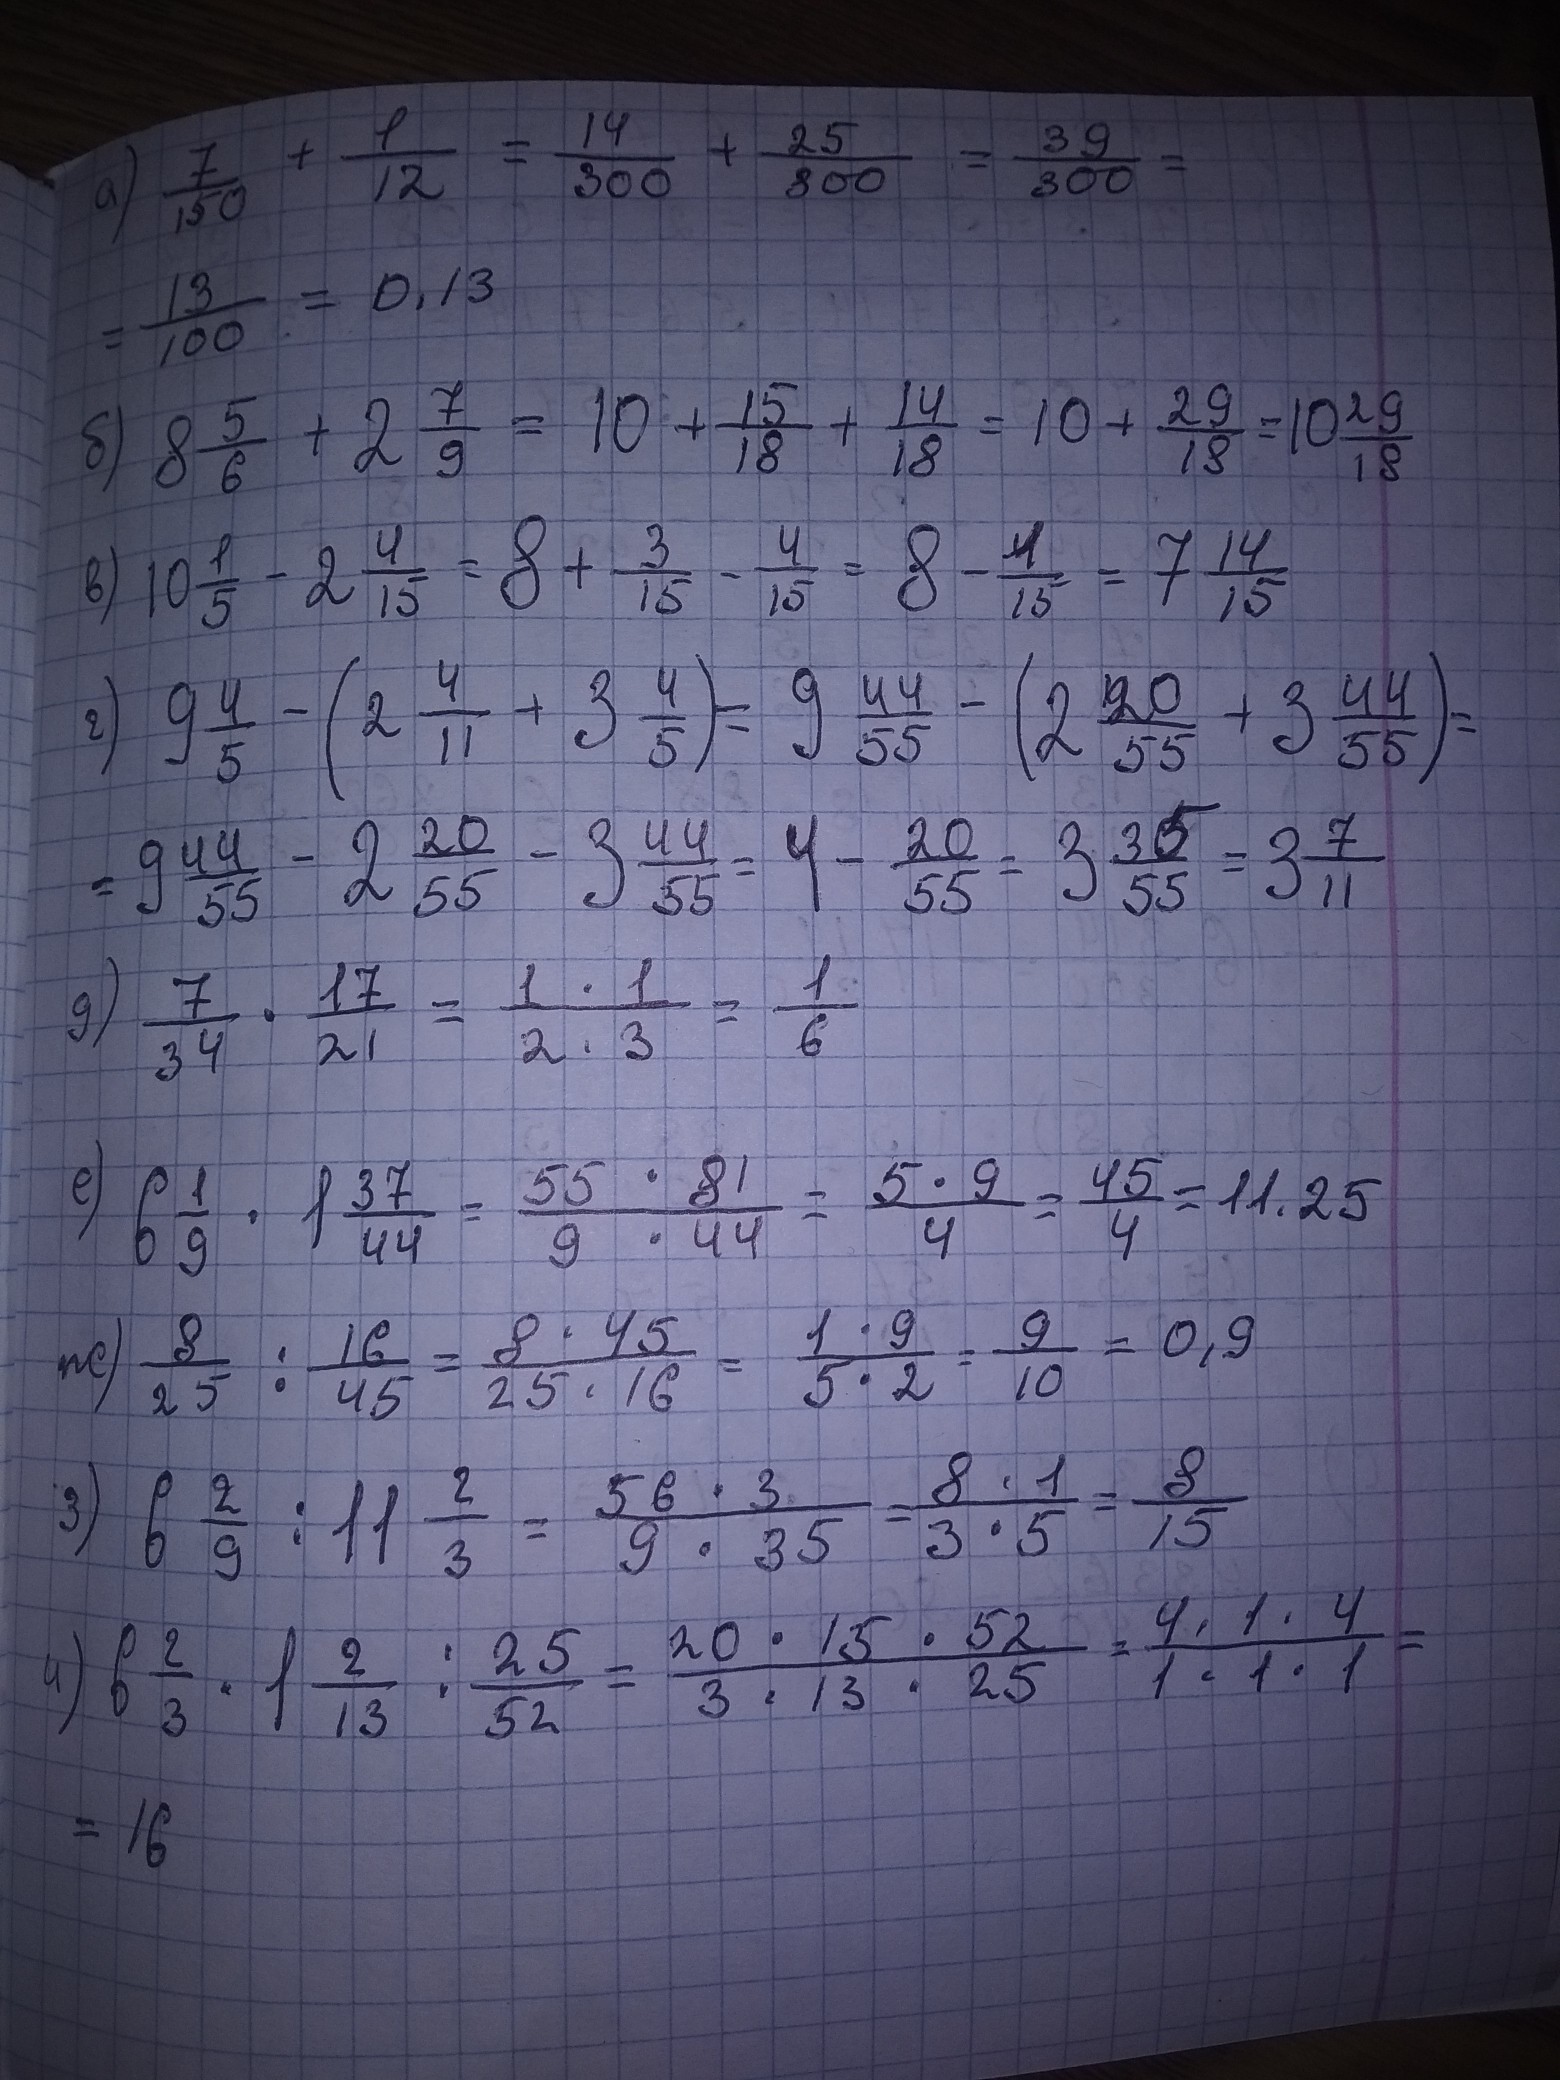 а) 7/150 + 1/12 = 14/300 + 25/300 = 39/300 =
= 13/100 = 0.13
б) 8 5/6 + 2 7/9 = 10 + 15/18 + 14/18 = 10 + 29/18 = 10 29/18
в) 10 1/5 - 2 4/15 = 8 + 3/15 - 4/15 = 8 - 1/15 = 7 14/15
г) 9 4/5 - (2 4/11 + 3 4/5) = 9 44/55 - (2 20/55 + 3 44/55) =
= 9 44/55 - 2 20/55 - 3 44/55 = 4 - 20/55 = 3 35/55 = 3 7/11
д) 7/34 · 17/21 = 1 · 1/2 · 3 = 1/6
е) 6 1/9 · 1 37/44 = 55 · 81/9 · 44 = 5 · 9/4 = 45/4 = 11.25
ж) 8/25 : 16/45 = 8 · 45/25 · 16 = 1 · 9/5 · 2 = 9/10 = 0,9
з) 6 2/9 : 11 2/3 = 56 · 3/9 · 35 = 8 · 1/3 · 5 = 8/15
и) 6 2/3 · 1 2/13 : 25/52 = 20 · 15 · 52/3 · 13 · 25 = 4 · 1 · 4/1 · 1 · 1 =
= 16